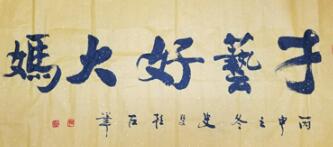 才藝好大媽
丙申之冬